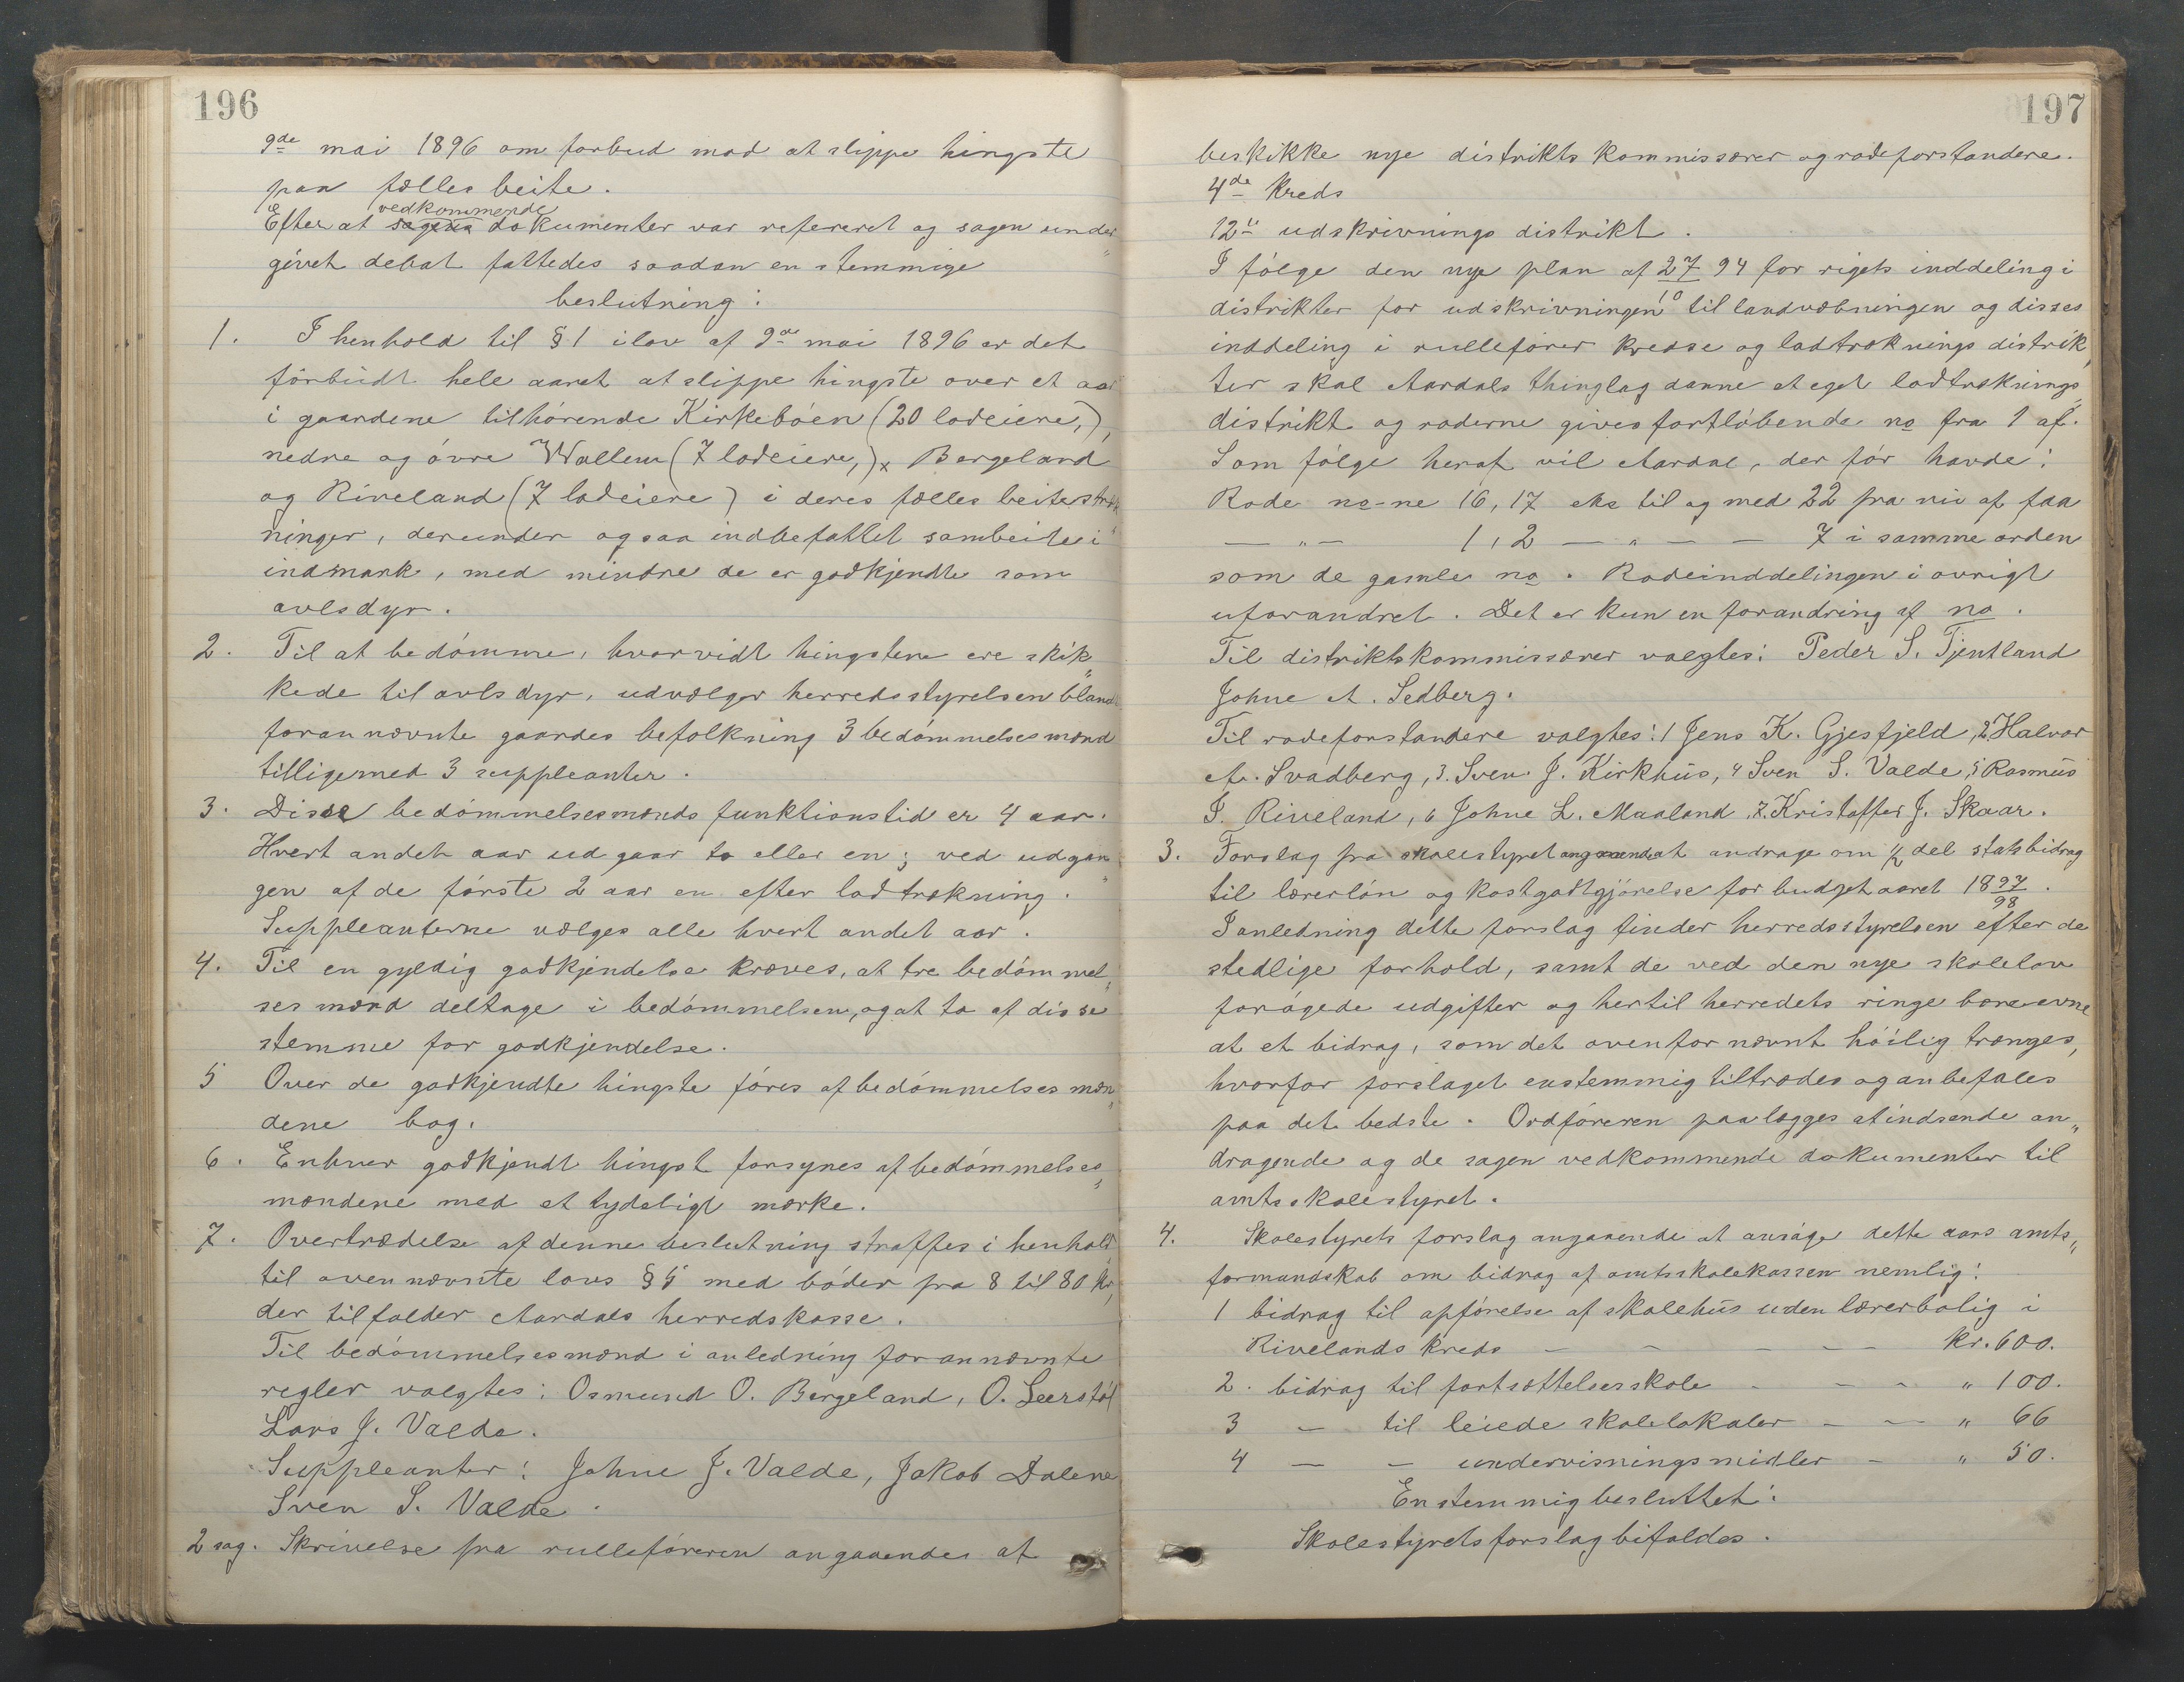 196
9de mai 1896 om forbud mod at slippe hingste
paa fælles beite.
vedkommende
Efter at sagens dokumenter var refereret og sagen under„
givet debat fattedes saadan enstemmige
beslutning:
1. I henhold til § 1 i lov af 9de mai 1896 er det
förbudt hele aaret at slippe hingste over et aar
i gaardene tilhörende Kirkeböen (20 lodeiere,),
nedre og övre Wallem (7 lodeiere,), Bergeland
og Riveland (7 lodeiere) i deres fælles beitestræk„
ninger, derunder ogsaa indbefattet sambeite i
indmark, med mindre de er godkjendte som
avlsdyr.
2. Til at bedömme, hvorvidt hingstene ere skik„
kede til avlsdyr, udvælger herredsstyrelsen blandt
forannævnte gaardes befolkning 3 bedömmelsesmænd
tilligemed 3 suppleanter.
3. Disse bedömmelsesmænds funktionstid er 4 aar.
Hvert andet aar udgaar to eller en; ved udgan„
gen af de förste 2 aar en efter lodtrækning.
Suppleanterne vælges alle hvert andet aar.
4. Til en gyldig godkjendelse kræves, at tre bedömmel„
sesmænd deltage i bedömmelsen, og at to af disse
stemme for godkjendelse.
5 Over de godkjendte hingste föres af bedömmelsesmæn„
dene bog.
6. Enhver godkjendt hingst forsynes af bedömmelses„
mændene med et tydeligt mærke.
7. Overtrædelse af denne beslutning straffes i henhold
til ovennævnte lovs § 5 med böder fra 8 til 80 kr,
der tilfalder Aardals herredskasse.
Til bedömmelsesmænd i anledning forannævnte
regler valgtes: Osmund O. Bergeland, O. Leerstöl
Lars J. Valde.
Suppleanter: Johne J. Valde, Jakob Dalene
Sven S. Valde.
2 sag. Skrivelse fra rulleföreren angaaendes at
197
beskikke nye distriktskommissærer og rodeforstandere.
4de Kreds
12te udskrivnings distrikt.
I fölge den nye plan af 27/10 94 for rigets inddeling i
distrikter for udskrivningen til landvæbningen og disses
inddeling i rulleförer kredse og lodtræknings distrik„
ter skal Aardals thinglag danne et eget lodtræknings„
distrikt og roderne gives fortlöbende no fra 1 af.
Som fölge heraf vil Aardal, der för havde:
Rode no-ne 16, 17 eks til og med 22 fra nu af faa
— „ — 1, 2 — „ — — 7 i samme orden
som de gamle no. Rodeinddelingen i ovrigt
uforandret. Det er kun en forandring af no.
Til distriktskommissærer valgtes: Peder S. Tjentland
Johne A. Sedberg.
Til rodeforstandere valgtes: 1 Jens K. Gjesfjeld, 2 Halvor
A. Svadberg, 3. Sven J. Kirkhus, 4 Sven S. Valde, 5 Rasmus
S. Riveland, 6 Johne L. Maaland, 7. Kristoffer J. Skaar.
3. Forslag fra skolestyret angaaende at andrage om 1/2 del statsbidrag
til lærerlön og kostgodtgjörelse for budgetaaret 1897/98.
I anledning dette forslag finder herredsstyrelsen efter de
stedlige forhold, samt de ved den nye skolelov
forögede udgifter og hertil herredets ringe bæreevne
at et bidrag, som det ovenfor nævnt höilig trænges,
hvorfor forslaget enstemmig tiltrædes og anbefales
paa det bedste. Ordföreren paalægges at indsende an„
dragende og de sagen vedkommende dokumenter til
amtsskolestyret.
4. Skolestyrets forslag angaaende at ansöge dette aars amts„
formandskab om bidrag af amtsskolekassen nemlig:
1 bidrag til opförelse af skolehus uden lærerbolig i
Rivelands kreds — — — — kr. 600.
2. bidrag til fortsættelsesskole - - - „ 100.
3 — til leiede skolelokaler - - - „ 66
4 — - undervisningsmidler - „ 50.
Enstemmig besluttet:
Skolestyrets forslag bifaldes.